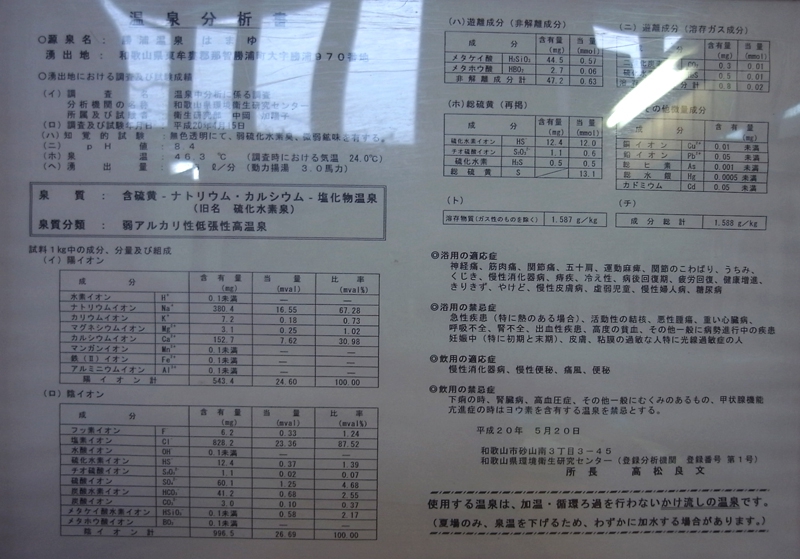 温泉分析書
○源泉名： 温泉 はまゆ
湧出地： 和歌山県東牟婁郡那智勝浦町大字勝浦970番地
○湧出地における調査及び試験成績
(イ) 調査 温泉中分析に係る調査
分析機関の名称 和歌山県環境衛生研究センター
所属及び試験者 衛生研究部 中岡 加陽子
(ロ) 調査及び試験年月日 平成20年4月15日
(ハ) 知覚的試験： 無色透明にて、弱硫化水素臭、微弱鹹味を有する。
(ニ) pH値： 8.4
(ホ) 泉温： 46.3 ℃ (調査時における気温 24.0℃)
(ヘ) 湧出量 ℓ/分 (動力揚湯 3.0馬力)
泉質： 含硫黄-ナトリウム・カルシウム-塩化物温泉
(旧名 硫化水素泉)
泉質分類： 弱アルカリ性低張性高温泉
試料1kg中の成分、分量及び組成
(イ) 陽イオン
成分 含有量(mg) 当量(mval) 比率(mval%)
水素イオン H⁺ 0.1未満 — —
ナトリウムイオン Na⁺ 380.4 16.55 67.28
カリウムイオン K⁺ 7.2 0.18 0.73
マグネシウムイオン Mg²⁺ 3.1 0.25 1.02
カルシウムイオン Ca²⁺ 152.7 7.62 30.98
マンガンイオン Mn²⁺ 0.1未満 — —
鉄(Ⅱ)イオン Fe²⁺ 0.1未満 — —
アルミニウムイオン Al³⁺ 0.1未満 — —
陽イオン計 543.4 24.60 100.00
(ロ) 陰イオン
成分 含有量(mg) 当量(mval) 比率(mval%)
フッ素イオン F⁻ 6.2 0.33 1.24
塩素イオン Cl⁻ 828.2 23.36 87.52
水酸イオン OH⁻ 0.1未満 — —
硫化水素イオン HS⁻ 12.4 0.37 1.39
チオ硫酸イオン S₂O₃²⁻ 1.1 0.02 0.07
硫酸イオン SO₄²⁻ 60.1 1.25 4.68
炭酸水素イオン HCO₃⁻ 41.2 0.68 2.55
炭酸イオン CO₃²⁻ 3.0 0.10 0.37
メタケイ酸水素イオン HSiO₃⁻ 0.58 2.17
メタホウ酸イオン BO₂⁻ 0.1未満 — —
陰イオン計 996.5 26.69 100.00
(ハ) 遊離成分 (非解離成分)
成分 含有量(mg) 当量(mmol)
メタケイ酸 H₂SiO₃ 44.5 0.57
メタホウ酸 HBO₂ 2.7 0.06
非解離成分計 47.2 0.63
(ニ) 遊離成分 (溶存ガス成分)
含有量(mg) 当量(mmol)
CO₂ 0.3 0.01
0.5 0.01
0.8 0.02
(ホ) 総硫黄 (再掲)
成分 含有量(mg) 当量(mmol)
硫化水素イオン HS⁻ 12.4 12.0
チオ硫酸イオン S₂O₃²⁻ 1.1 0.6
硫化水素 H₂S 0.5 0.5
総硫黄 S 13.1
その他微量成分
成分 含有量(mg)
銅イオン Cu²⁺ 0.01 未満
鉛イオン Pb²⁺ 0.05 未満
総ヒ素 As 0.001 未満
総水銀 Hg 0.0005 未満
カドミウム Cd 0.05 未満
(ト)
溶存物質(ガス性のものを除く) 1.587 g/kg
(チ)
成分総計 1.588 g/kg
◎浴用の適応症
神経痛、筋肉痛、関節痛、五十肩、運動麻痺、関節のこわばり、うちみ、
くじき、慢性消化器病、痔疾、冷え性、病後回復期、疲労回復、健康増進、
きりきず、やけど、慢性皮膚病、虚弱児童、慢性婦人病、糖尿病
◎浴用の禁忌症
急性疾患(特に熱のある場合)、活動性の結核、悪性腫瘍、重い心臓病、
呼吸不全、腎不全、出血性疾患、高度の貧血、その他一般に病勢進行中の疾患
妊娠中(特に初期と末期)、皮膚、粘膜の過敏な人特に光線過敏症の人
◎飲用の適応症
慢性消化器病、慢性便秘、痛風、便秘
◎飲用の禁忌症
下痢の時、腎臓病、高血圧症、その他一般にむくみのあるもの、甲状腺機能
亢進症の時はヨウ素を含有する温泉を禁忌とする。
平成20年 5月20日
和歌山市砂山南3丁目3-45
和歌山県環境衛生研究センター (登録分析機関 登録番号 第1号)
所長 高松良文
使用する温泉は、加温・循環ろ過を行わないかけ流しの温泉です。
(夏場のみ、泉温を下げるため、わずかに加水する場合があります。)